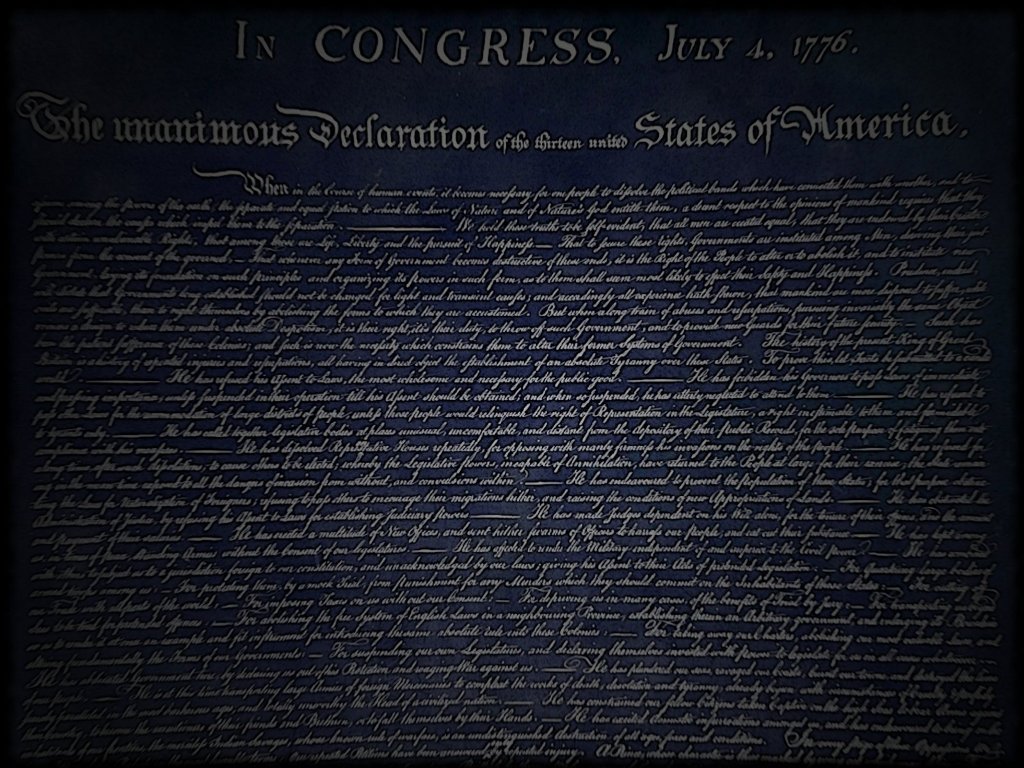 IN CONGRESS, JULY 4, 1776.
The unanimous Declaration of the thirteen united States of America,
When in the Course of human events, it becomes necessary for one people to dissolve the political bands which have connected them with another, and to
the powers of the earth, the separate and equal station to which the Laws of Nature and of Nature's God entitle them, a decent respect to the opinions of mankind requires that they
should declare the causes which impel them to the separation. We hold these truths to be self-evident, that all men are created equal, that they are endowed by their Creator
with unalienable Rights, that among these are Life, Liberty and the pursuit of Happiness. — That to secure these rights, Governments are instituted among Men, deriving their just
powers from the consent of the governed, — That whenever any Form of Government becomes destructive of these ends, it is the Right of the People to alter or to abolish it, and to institute new
Government, laying its foundation on such principles and organizing its powers in such form, as to them shall seem most likely to effect their Safety and Happiness. Prudence, indeed,
will dictate that Governments long established should not be changed for light and transient causes; and accordingly all experience hath shewn, that mankind are more disposed to suffer, while
to right themselves by abolishing the forms to which they are accustomed. But when a long train of abuses and usurpations, pursuing invariably the same Object
to reduce them under absolute Despotism, it is their right, it is their duty, to throw off such Government, and to provide new Guards for their future security. — Such has
been the patient sufferance of these Colonies; and such is now the necessity which constrains them to alter their former Systems of Government. The history of the present King of Great
of repeated injuries and usurpations, all having in direct object the establishment of an absolute Tyranny over these States. To prove this, let Facts be submitted to a candid
world. He has refused his Assent to Laws, the most wholesome and necessary for the public good. He has forbidden his Governors to pass Laws of immediate
and pressing importance, unless suspended in their operation till his Assent should be obtained; and when so suspended, he has utterly neglected to attend to them. He has refused
for the accommodation of large districts of people, unless those people would relinquish the right of Representation in the Legislature, a right inestimable to them and formidable
to tyrants only. He has called together legislative bodies at places unusual, uncomfortable, and distant from the depository of their public Records, for the sole purpose of
He has dissolved Representative Houses repeatedly, for opposing with manly firmness his invasions on the rights of the people. He has refused for
after such dissolutions, to cause others to be elected; whereby the Legislative powers, incapable of Annihilation, have returned to the People at large for their exercise; the State
exposed to all the dangers of invasion from without, and convulsions within. He has endeavoured to prevent the population of these States; for that purpose
Laws for Naturalization of Foreigners; refusing to pass others to encourage their migrations hither, and raising the conditions of new Appropriations of Lands. He has obstructed the
Administration of Justice, by refusing his Assent to Laws for establishing Judiciary powers. He has made Judges dependent on his Will alone, for the tenure of their
of their salaries. He has erected a multitude of New Offices, and sent hither swarms of Officers to harrass our people, and eat out their substance. He has kept
Standing Armies without the Consent of our legislatures. He has affected to render the Military independent of and superior to the Civil power. He has
to a jurisdiction foreign to our constitution, and unacknowledged by our laws; giving his Assent to their Acts of pretended Legislation: For
among us: — For protecting them, by a mock Trial, from punishment for any Murders which they should commit on the Inhabitants of these States: —
Trade with all parts of the world: — For imposing Taxes on us without our Consent: — For depriving us in many cases, of the benefits of Trial by Jury: —
For abolishing the free System of English Laws in a neighbouring Province, establishing therein an Arbitrary government, and
example and fit instrument for introducing the same absolute rule into these Colonies: — For taking away our Charters, abolishing our
the Forms of our Governments: — For suspending our own Legislatures, and declaring themselves invested with power to legislate for us in all
He has abdicated Government here, by declaring us out of his Protection and waging War against us. He has plundered our
He is at this time transporting large Armies of foreign Mercenaries to compleat the works of death, desolation and tyranny, already begun with circumstances of
in the most barbarous ages, and totally unworthy the Head of a civilized nation. He has constrained our fellow Citizens taken Captive on the high Seas
of their friends and Brethren, or to fall themselves by their Hands. He has excited domestic insurrections
the merciless Indian Savages, whose known rule of warfare, is an undistinguished destruction of all ages, sexes and conditions. In every stage of these
Our repeated Petitions have been answered by repeated injury. A Prince, whose character is